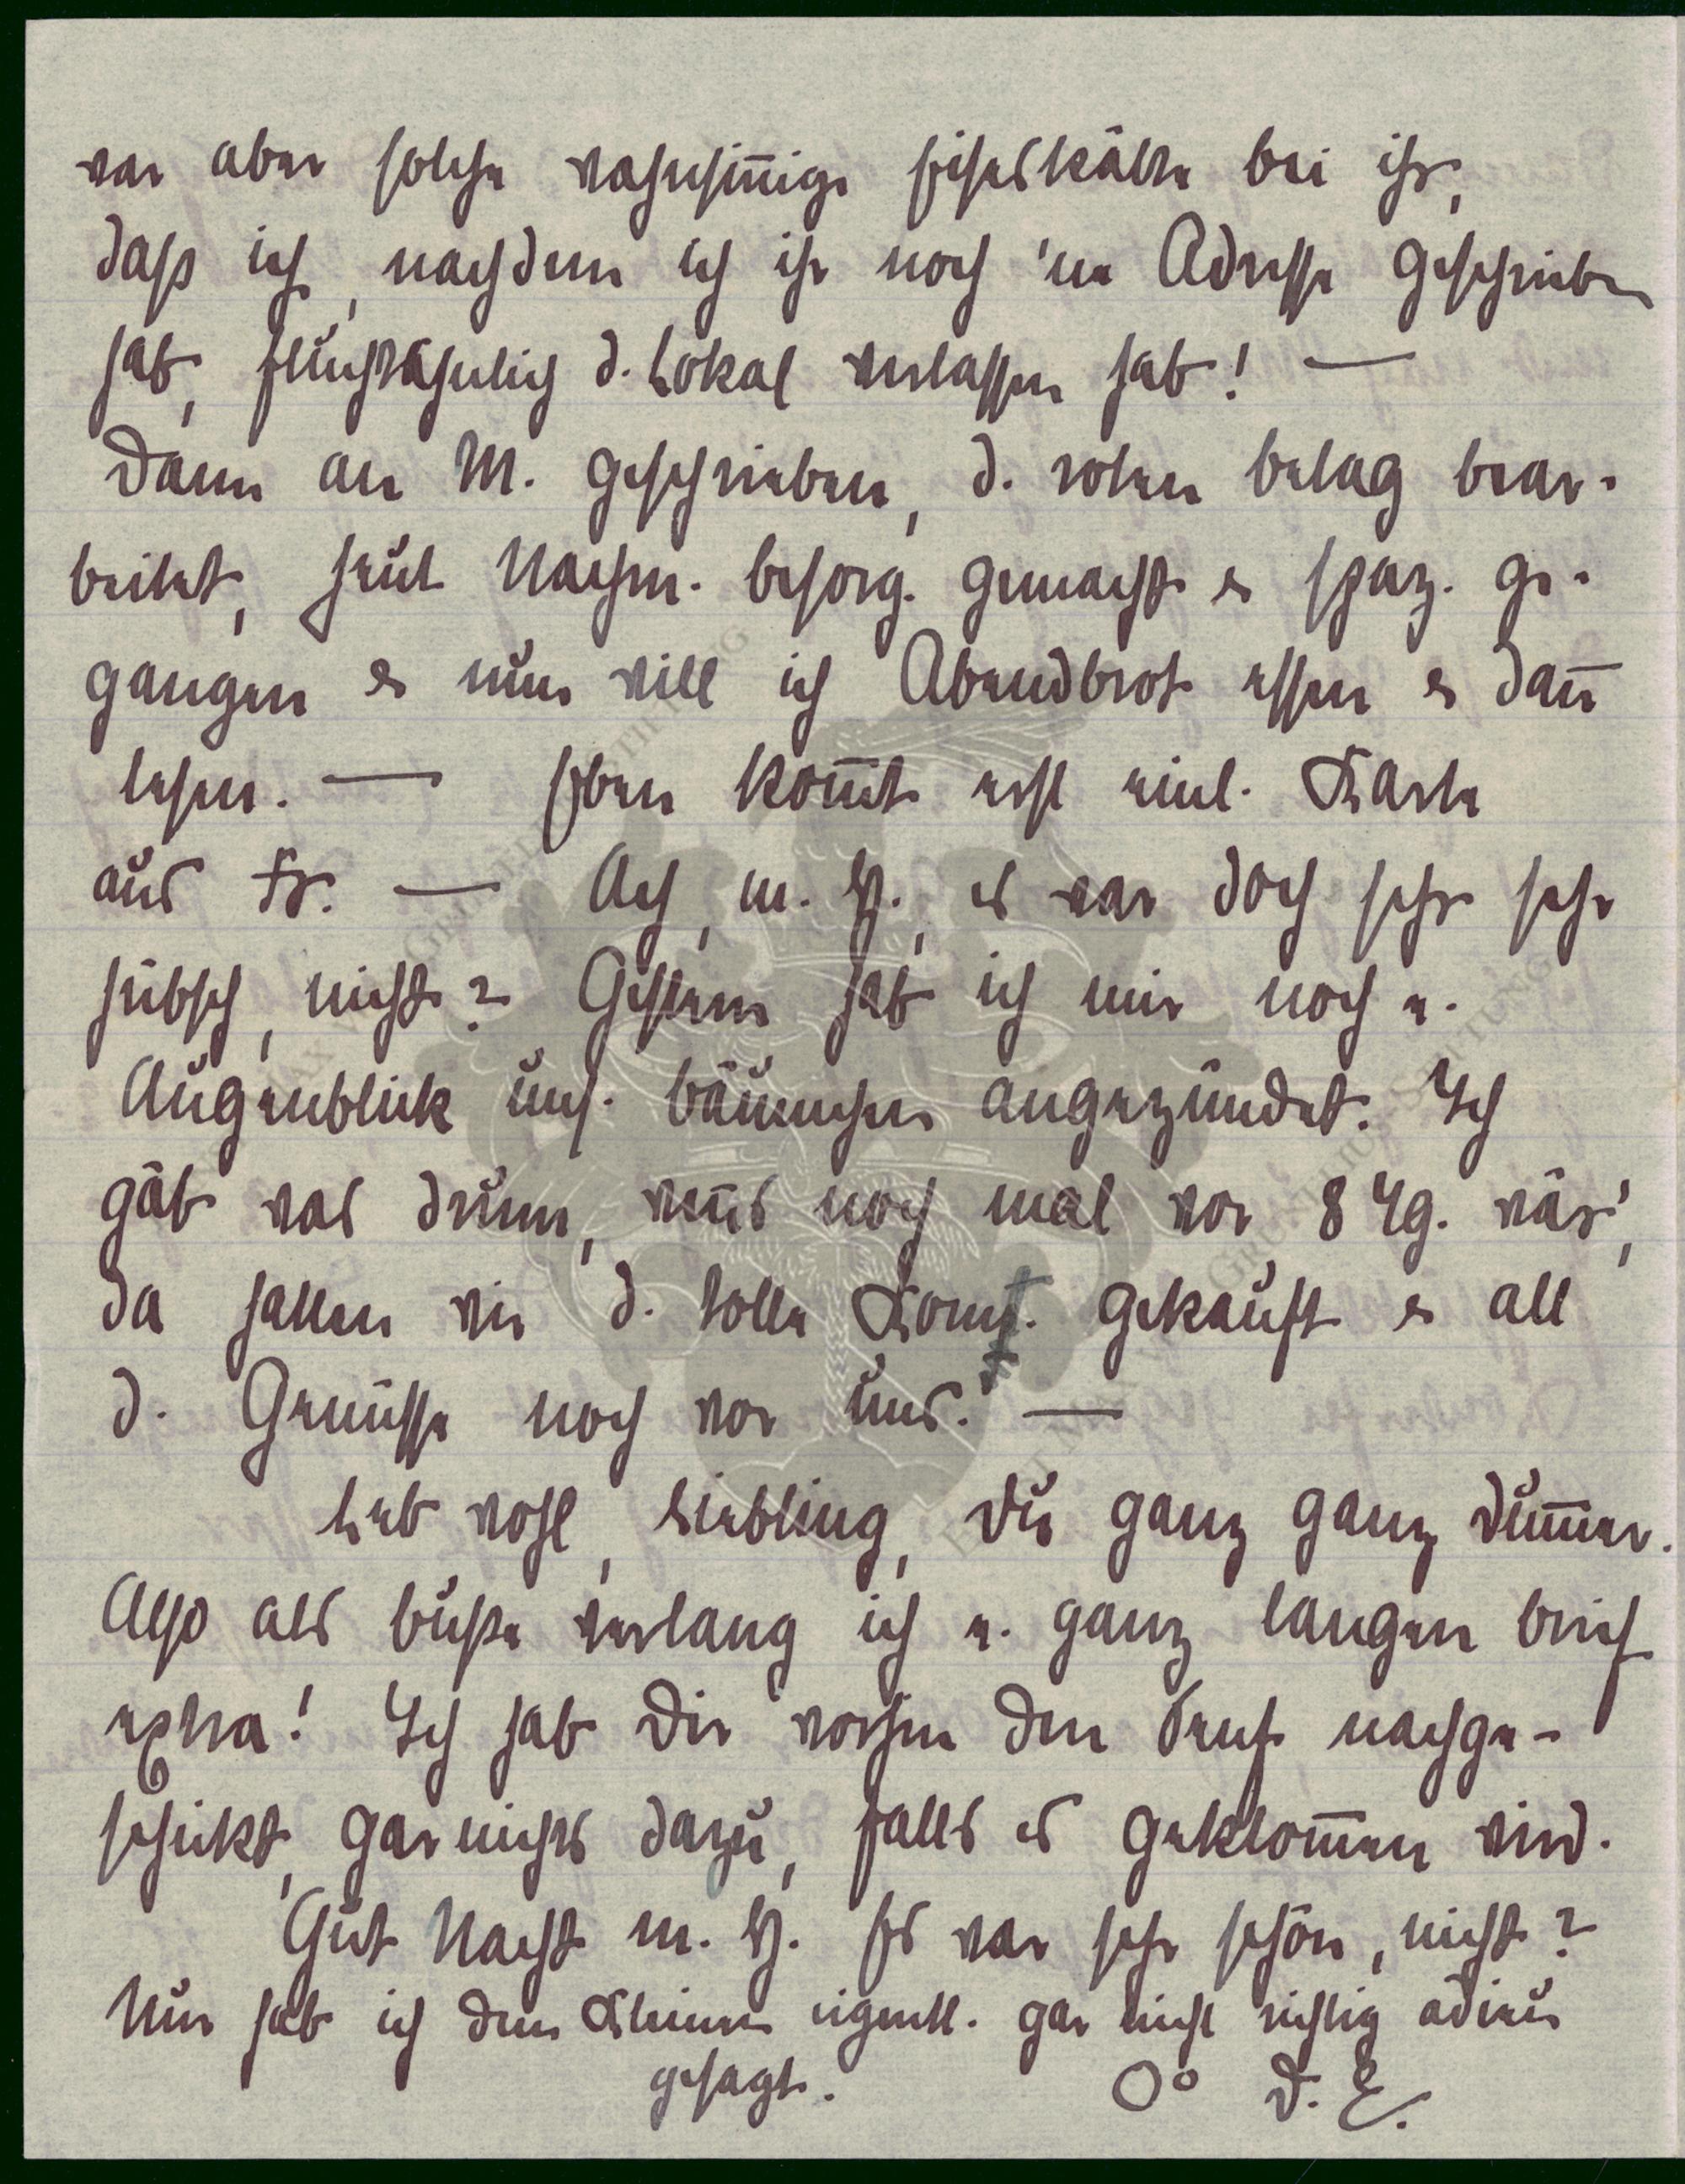 war aber solche wahnsinnige Eiseskälte bei ihr,
dass ich, nachdem ich ihr noch 'ne Adresse geschrieben
hab, fluchtähnlich d. Lokal verlassen hab! —
Dann an M. geschrieben, d. roten Belag bear-
beitet, heut Nachm. Besorg. gemacht u spaz. ge-
gangen u nun will ich Abendbrot essen u dan̄
lesen. — Eben kom̄t erst eine Karte
aus Fr. — Ach, m. H., es war doch sehr sehr
hübsch, nicht? Gestern hab ich mir noch e.
Augenblick uns. Bäumchen angezündet. Ich
gäb was drum, wen̄s noch mal vor 8 Tg. wär',
da hatten wir d. tolle Komp. gekauft u all
d. Genüsse noch vor uns. —
Leb wohl, Liebling, Du ganz ganz Dum̄er.
Also als Busse verlang ich e. ganz langen Brief
extra! Ich hab Dir vorhin den Senf nachge-
schickt, gar nichts dazu, falls es geklom̄en wird.
Gut Nacht m. H. Es war sehr schön, nicht?
Nun hab ich dem Kleinen eigentl. gar nicht richtig adieu
gesagt. O° D. E.